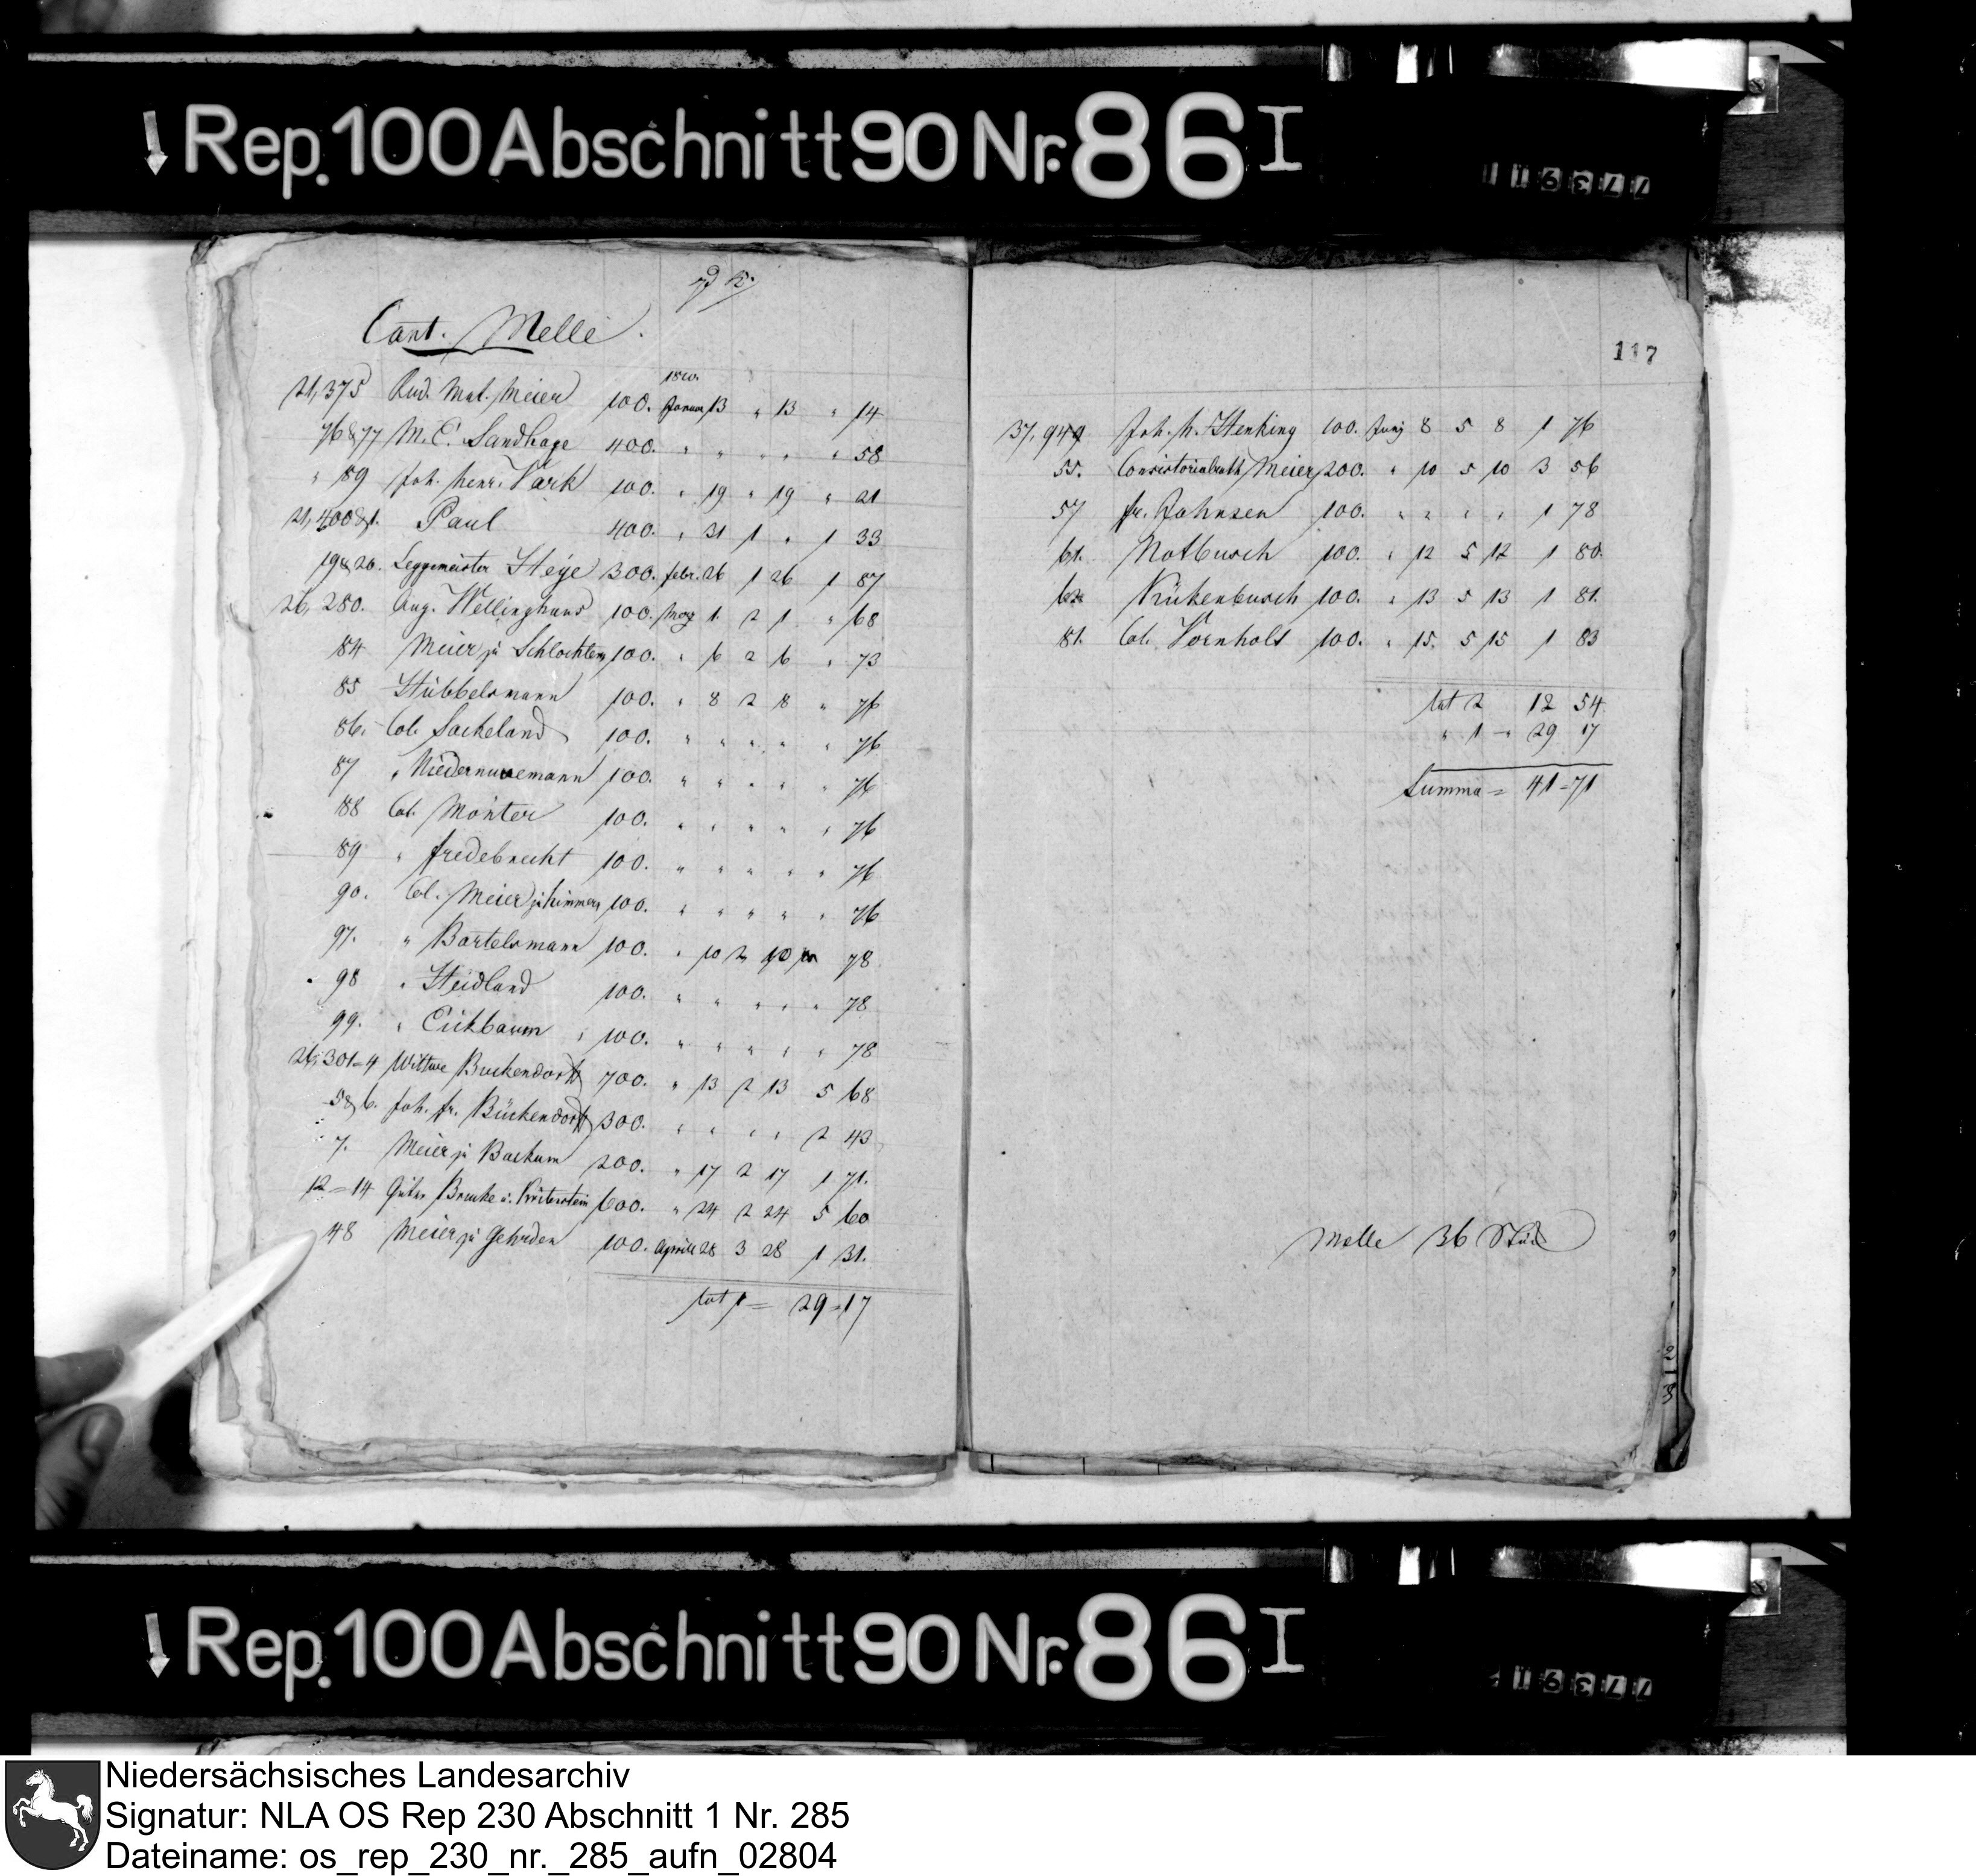 Rep. 100 Abschnitt 90 Nr. 86 I
Cant. Melle.
1810.
21,375 Rud. Mat. Meier 100. Januar 13 " 13 " 14
76 & 77 M. C. Sandhage 400. " " " " " 58
" 89 Joh. Henr. Vark 100. " 19 " 19 " 21
21,400 & 1. Paul 400. " 31 1 " 1 33
19 & 20. Leggemeister Heye 300. febr. 26 1 26 1 87
26,280. Aug. Wellinghaus 100. Merz 1. 2 1 " 68
84 Meier zu Schlochtern 100. " 6 2 6 " 73
85 Stübbelsmann 100. " 8 2 8 " 76
86. Col. Sackeland 100. " " " " " 76
87 " 100. " " " " " 76
88 Col. Mönter 100. " " " " " 76
89 " Fredebrecht 100. " " " " " 76
90. Col. Meier zu 100. " " " " " 76
97. " Bartelsmann 100. " 10 2 10 " 78
98 " Heidland 100. " " " " " 78
99. " Eickbaum 100. " " " " " 78
26,301=4 Wittwe Buckendorff 700. " 13 2 13 5 68
5 & 6. Joh. fr. Bückendorff 300. " " " " 2 43
7. Meier zu Backum 200. " 17 2 17 1 71.
12=14 Güter Bruche u. 600. " 24 2 24 5 60
48 Meier zu Gehrden 100. April 28 3 28 1 31.
lat 1 = 29=17
117
37,949 Joh. H. Henking 100. Junij 8 5 8 1 76
55. Consistorialrath Meier 200. " 10 5 10 3 56
57 fr. Johnsen 100. " " " " 1 78
61. Notbusch 100. " 12 5 12 1 80.
62 Kükenbusch 100. " 13 5 13 1 81.
81. Col. Vornholt 100. " 15. 5 15 1 83
lat 2 12 54
" 1 - 29 17
Summa = 41=71
Melle 36 Stück
Rep. 100 Abschnitt 90 Nr. 86 I
Niedersächsisches Landesarchiv
Signatur: NLA OS Rep 230 Abschnitt 1 Nr. 285
Dateiname: os_rep_230_nr._285_aufn_02804